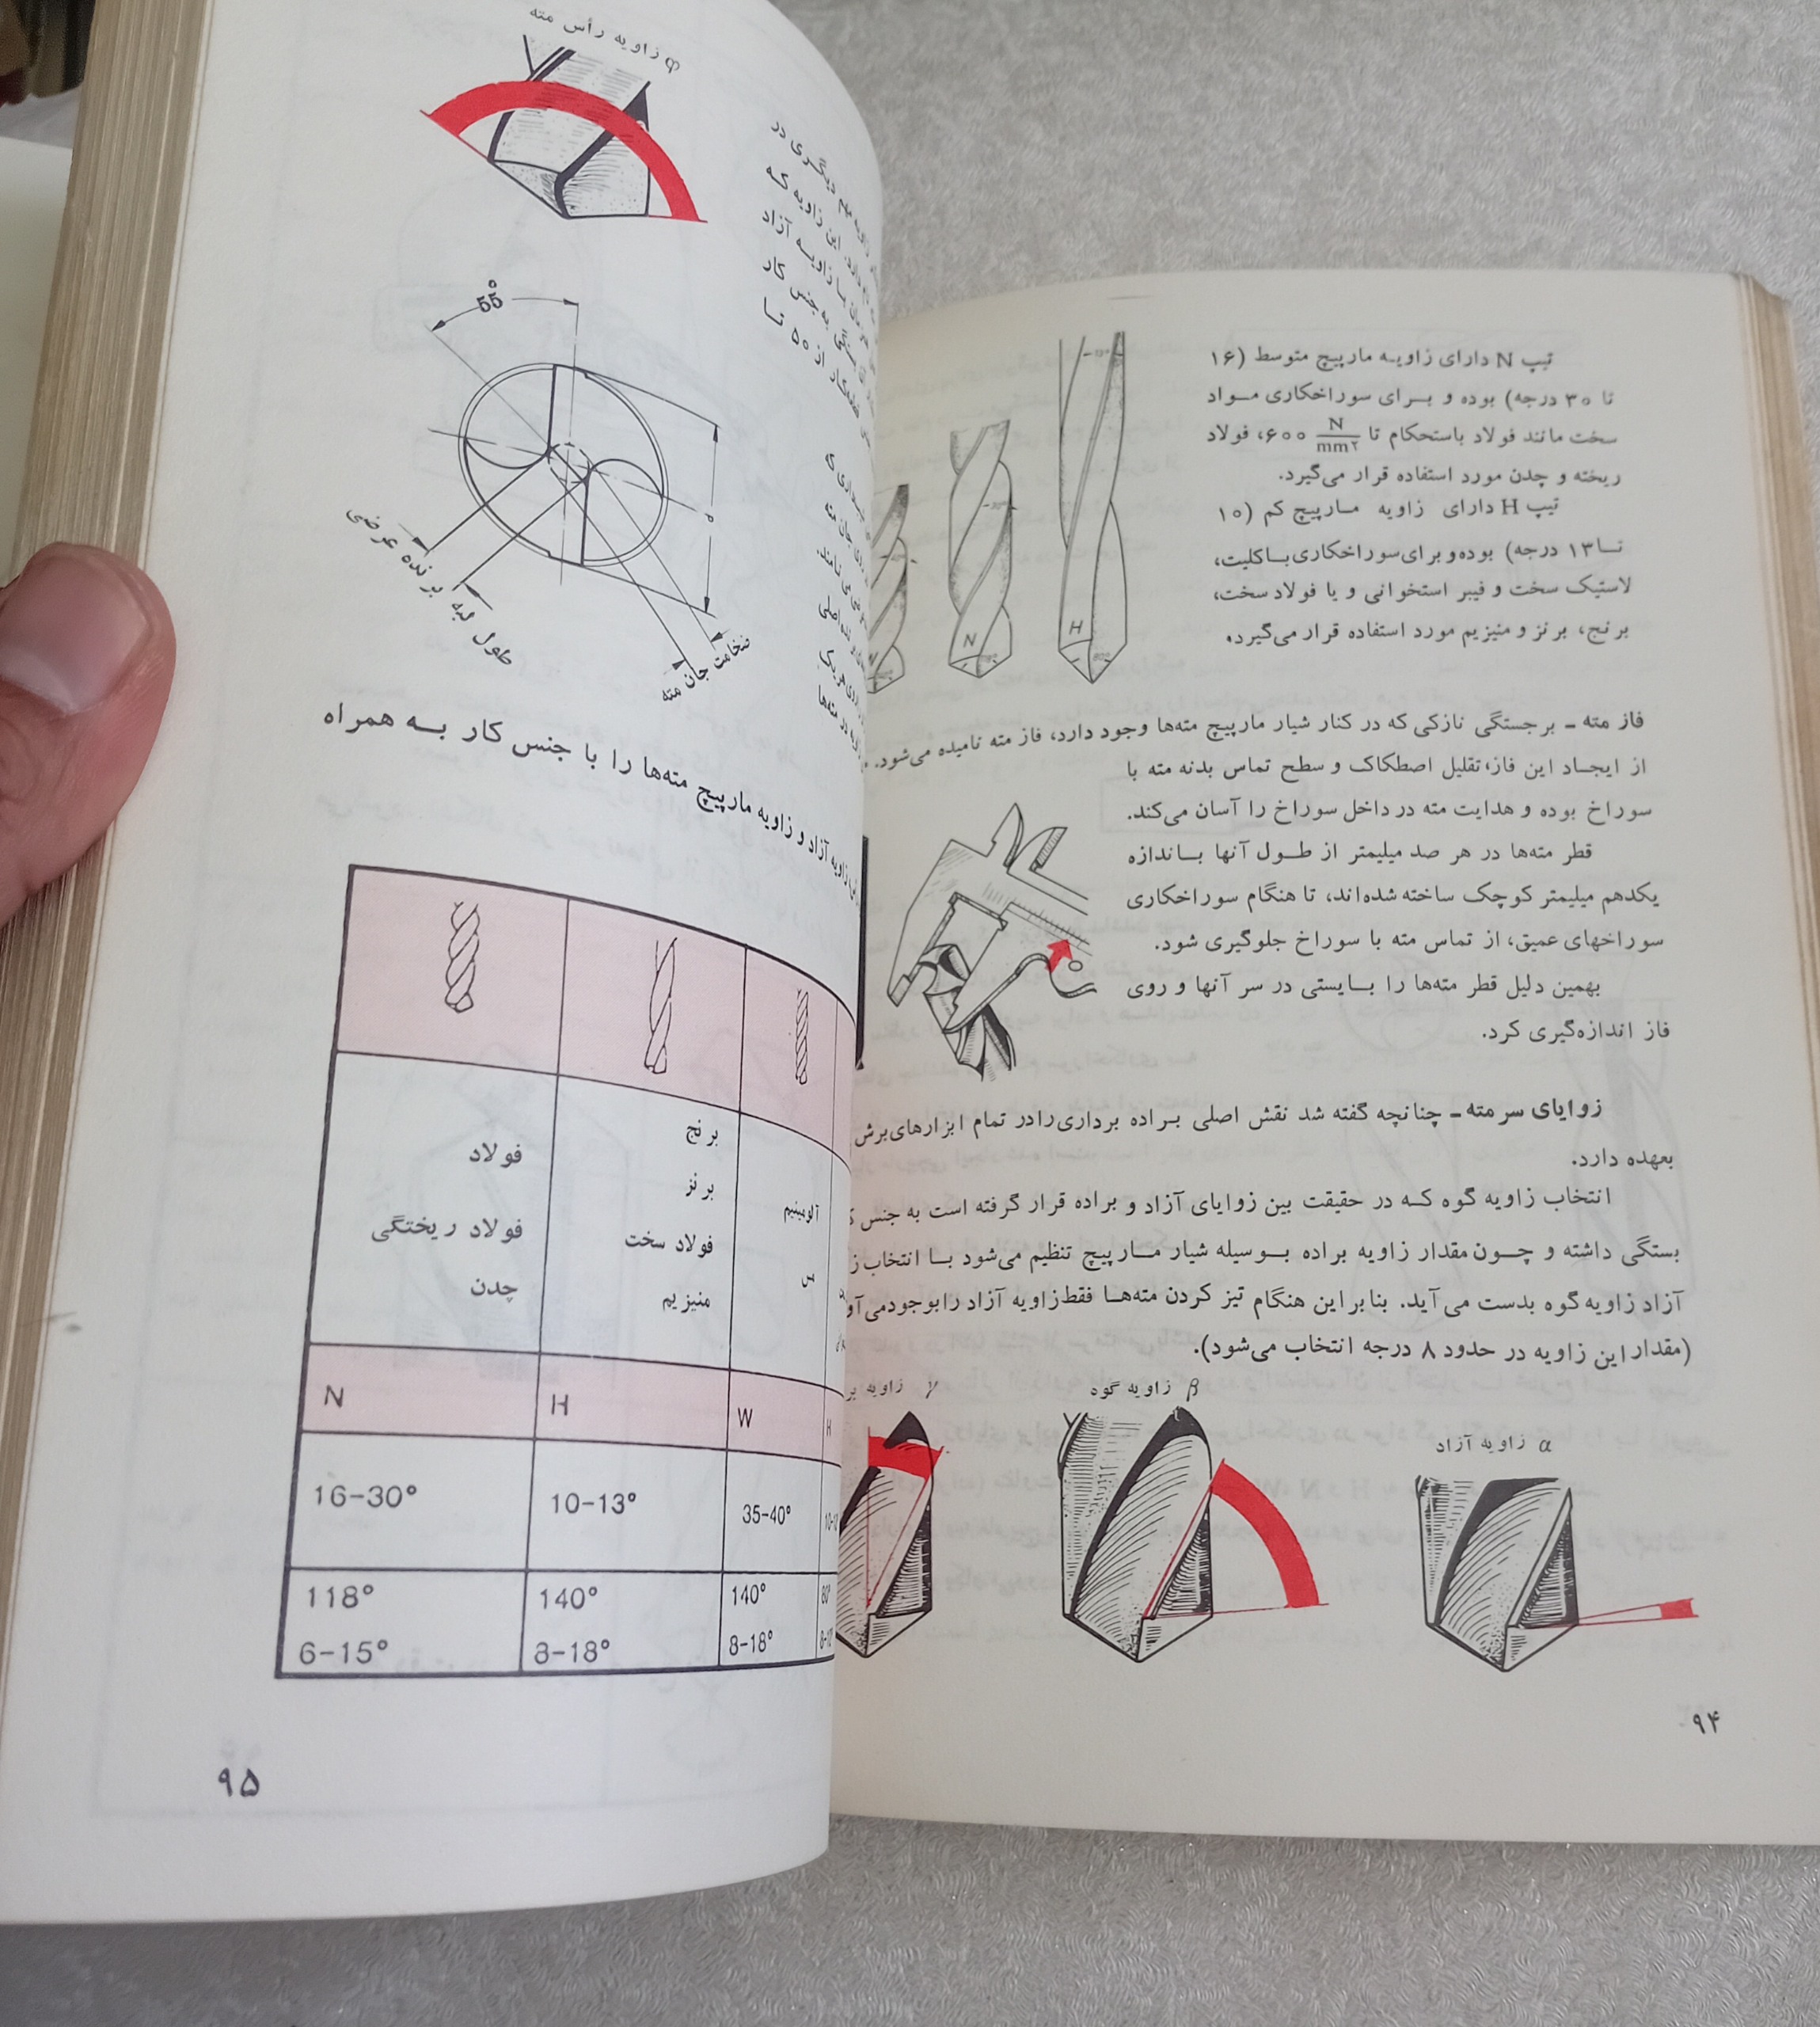 تیپ N دارای زاویه مارپیچ متوسط (۱۶
تا ۳۰ درجه) بوده و برای سوراخکاری مواد
سخت مانند فولاد باستحکام تا ۶۰۰ N/mm۲، فولاد
ریخته و چدن مورد استفاده قرار می‌گیرد.
تیپ H دارای زاویه مارپیچ کم (۱۰
تا ۱۳ درجه) بوده و برای سوراخکاری باکلیت،
لاستیک سخت و فیبر استخوانی و یا فولاد سخت،
برنج، برنز و منیزیم مورد استفاده قرار می‌گیرد.
N
H
فاز مته ـ برجستگی نازکی که در کنار شیار مارپیچ مته‌ها وجود دارد، فاز مته نامیده می‌شود.
از ایجاد این فاز، تقلیل اصطکاک و سطح تماس بدنه مته با
سوراخ بوده و هدایت مته در داخل سوراخ را آسان می‌کند.
قطر مته‌ها در هر صد میلیمتر از طول آنها باندازه
یکدهم میلیمتر کوچک ساخته شده‌اند، تا هنگام سوراخکاری
سوراخهای عمیق، از تماس مته با سوراخ جلوگیری شود.
بهمین دلیل قطر مته‌ها را بایستی در سر آنها و روی
فاز اندازه‌گیری کرد.
زوایای سر مته ـ چنانچه گفته شد نقش اصلی براده برداری را در تمام ابزارهای برش
بعهده دارد.
انتخاب زاویه گوه که در حقیقت بین زوایای آزاد و براده قرار گرفته است به جنس
بستگی داشته و چون مقدار زاویه براده بوسیله شیار مارپیچ تنظیم می‌شود با انتخاب
آزاد زاویه گوه بدست می‌آید. بنابراین هنگام تیز کردن مته‌ها فقط زاویه آزاد را بوجود می‌آو
(مقدار این زاویه در حدود ۸ درجه انتخاب می‌شود).
α زاویه آزاد
β زاویه گوه
γ زاویه بر
۹۴
φ زاویه رأس مته
55°
طول لبه برنده عرضی
ضخامت جان مته
زاویه آزاد و زاویه مارپیچ مته‌ها را با جنس کار به همراه
آلومینیم
برنج
برنز
فولاد سخت
منیزیم
فولاد
فولاد ریختگی
چدن
N H W H
16-30° 10-13° 35-40°
118° 140° 140° 80°
6-15° 8-18° 8-18°
۹۵